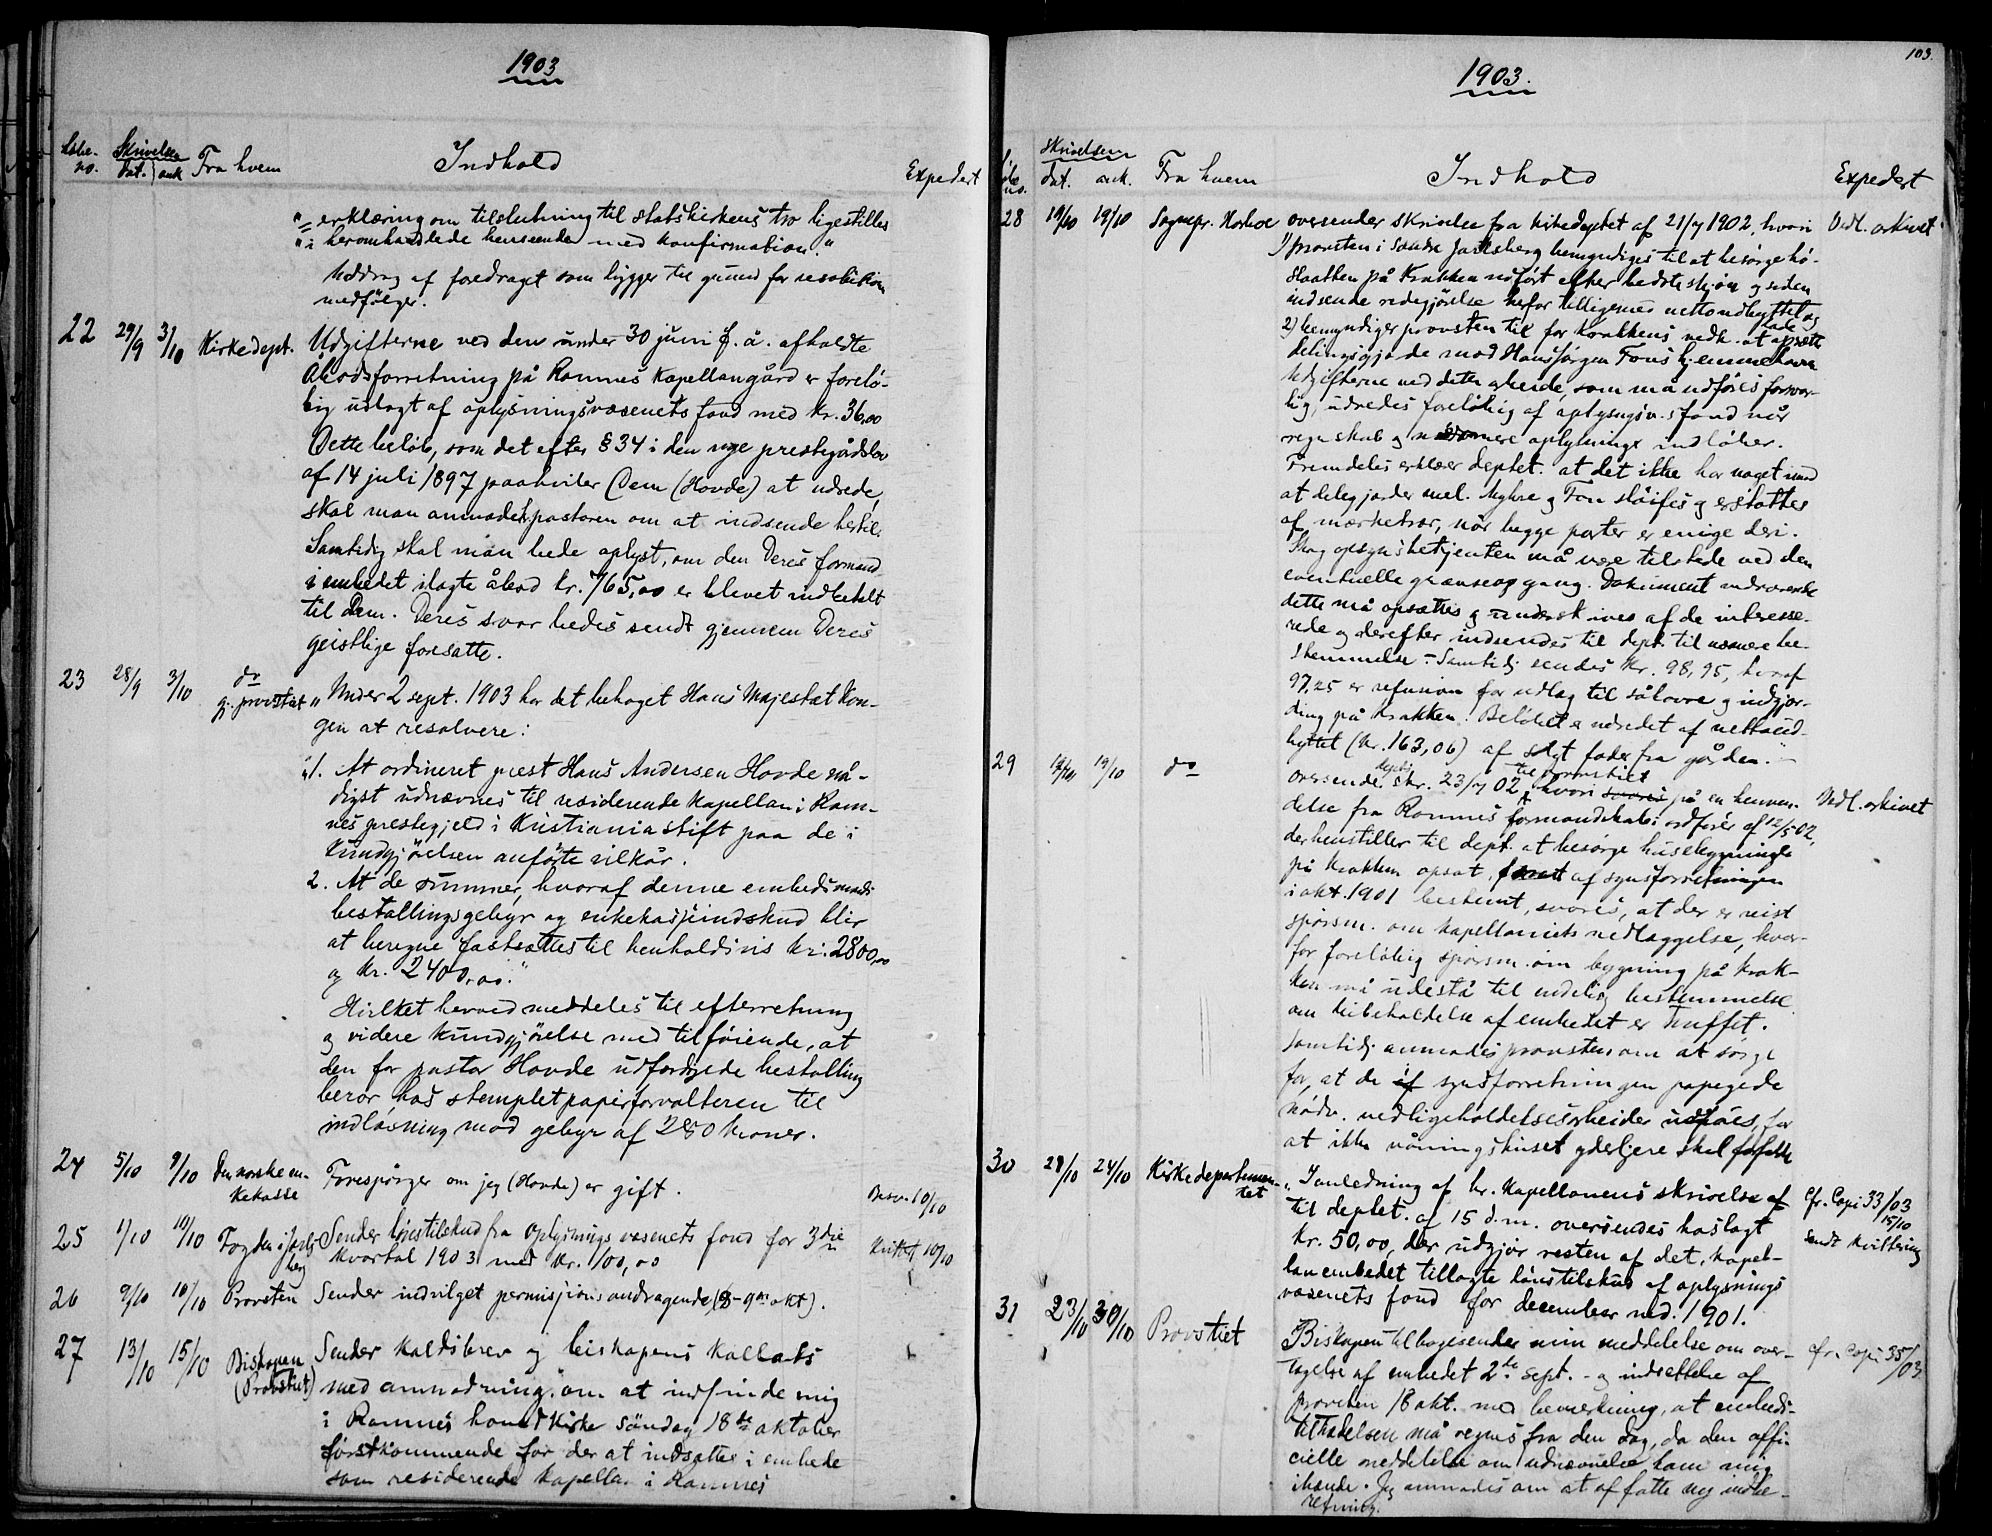 1903
Løbe-
no.
Skrivelsen
dat. ank
Fra hvem
Indhold
Expedert
"= erklæring om tilslutning til statskirkens tro ligestilles
" i heromhandlede henseende med konfirmation."
Uddrag af foredraget som ligger til grund for resolution
medfølger.
22 29/9 3/10 Kirkedept. Udgifterne ved den under 30 juni d. å. afholdte
Åbodsforretning på Ramnes Kapellangård er forelø-
big udlagt af oplysningsvæsenets fond med kr. 36,00
Dette beløb, som det efter § 34 i den nye prestegårdslov
af 14 juli 1897 paahviler Dem (Hovde) at udrede,
skal man anmode pastoren om at indsende hertil.
Samtidig skal man bede oplyst, om den Deres formand
i embedet ilagte åbod kr. 765,00 er blevet indbetalt
til Dem. Deres svar bedes sendt gjennem Deres
geistlige foresatte.
23 28/9 3/10 do
gj. provstiet
"Under 2 sept. 1903 har det behaget Hans Majestæt Kon-
gen at resolvere:
"1. At ordineret prest Hans Andersen Hovde nå-
digst udnævnes til residerende kapellan i Ram-
nes prestegjeld i Kristiania stift paa de i
Kundgjørelsen anførte vilkår.
2. At de summer, hvoraf denne embedsmands
bestallingsgebyr og enkekasseindskud blir
at beregne fastsættes til henholdsvis kr: 2800,00
og kr. 2400,00."
Hvilket herved meddeles til efterretning
og videre kundgjørelse med tilføiende, at
den for pastor Hovde udfærdigede bestalling
beror hos stempletpapirforvalteren til
indløsning mod gebyr af 280 kroner.
24 5/10 9/10 Den norske en-
kekasse
Forespørger om jeg (Hovde) er gift.
Besv. 10/10
25 1/10 10/10 Fogden i Jarls-
berg
Sender lønstilskud fra Oplysningsvæsenets fond for 3die
kvartal 1903 med kr. 100,00
Kvittet 10/10
26 9/10 10/10 Provsten Sender indvilget permissionsandragende (8-9de okt).
27 13/10 15/10 Biskopen
(Provstiet)
Sender kaldsbrev og biskopens kollats
med anmodning om at indfinde mig
i Ramnes hovedkirke søndag 18de oktober
førstkommende for der at indsættes i embede
som residerende kapellan i Ramnes
103.
1903.
Løbe
no.
Skrivelsen
dat. ank.
Fra hvem
Indhold
Expedert
28 19/10 19/10 Sognepr. oversender skrivelse fra kirkedeptet af 21/7 1902, hvori
Vedl. arkivet
1) provsten i Søndre Jarlsberg bemyndiges til at besørge hø-
slaatten på Krakken udført efter bedste skjøn og siden
indsende redegjørelse herfor tilligemed nettoudbyttet og
2) bemyndiger provsten til for Krakkens vedk. at lade opsætte
delingsgjærde mod Hans Jørgen Fons hjemmehavn
Udgifterne ved dette arbeide, som må udføres forsvar-
lig, udredes foreløbig af oplysngsv.s fond når
regnskab og nærmere oplysninger indløber.
Fremdeles erklærer deptet. at det ikke har noget imod
at delegjærder mel. Myhre og Fon sløifes og erstattes
af mærketrær, når begge parter er enige deri.
Skogopsynsbetjenten må være tilstede ved den
eventuelle grænseopgang. Dokument vedrørende
dette må opsættes og underskrives af de interesse-
rede og derefter indsendes til dept. til nærmere be-
stemmelse – Samtidig sendes kr. 98,95, hvoraf
97,25 er refusion for udlag til såkorn og indgjær-
ding på Krakken. Beløbet er udredet af nettoud-
byttet (kr. 163,06) af solgt foder fra gården."
29 19/10 19/10 do
oversender deptets skr. 23/7 02 til provstiet, hvori på en henven-
Vedl. arkivet
delse fra Ramnes formandskabs ordfører af 12/5 02,
der henstiller til dept. at besørge husebygningen
på Krakken opsat, af synsforretningen
i okt. 1901 bestemt, svares, at der er reist
spørsm. om kapellaniets nedlæggelse, hvor-
for foreløbig spørsm. om bygning på Krak-
ken må udestå til endelig bestemmelse
om bibeholdelse af embedet er truffet.
Samtidig anmodes provsten om at sørge
for, at de af synsforretningen påpegede
nødv. vedligeholdelsesarbeider udføres, for
at ikke våningshuset yderligere skal forfalde
30 21/10 24/10 Kirkedepartemen-
tet
"I anledning af hr. Kapellanens skrivelse af
til deptet. af 15 d.m. oversendes hoslagt
kr. 50,00, der udgjør resten af det, kapel-
lanembedet tillagte lønstilskud af oplysnings
væsenets fond for december md. 1901.
cfr. Copi 33/03
15/10
sendt kvittering
31 23/10 30/10 Provstiet
Biskopen tilbagesender min meddelelse om over-
tagelse af embedet 2de sept. – og indsættelse af
provsten 18 okt. med bemerkning, at embeds-
tiltrædelsen må regnes fra den dag, da den offi-
cielle meddelelse om udnævnelse kom mig
ihænde. Jeg anmodes om at affatte ny indbe-
retning.
cfr. Copi 35/03